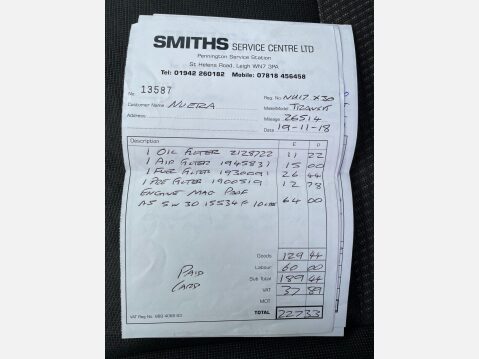 SMITHS SERVICE CENTRE LTD
Pennington Service Station
St Helens Road, Leigh WN7 3PA
Tel: 01942 260182 Mobile: 07818 456458
No. 13587
Reg. No. NU17 X30
Customer Name NUERA
Make/Model TRANSIT
Address
Mileage 26514
Date 19-11-18
Description £ p
1 OIL FILTER 2128722 11 22
1 AIR FILTER 1945831 15 00
1 FUEL FILTER 1930091 26 44
1 POL FILTER 1900519 12 78
ENGINE MAG
A5 5W30 15534F 64 00
Goods 129 44
PAID
CARD
Labour 60 00
Sub Total 189 44
VAT 37 89
MOT
TOTAL 227 33
VAT Reg No.